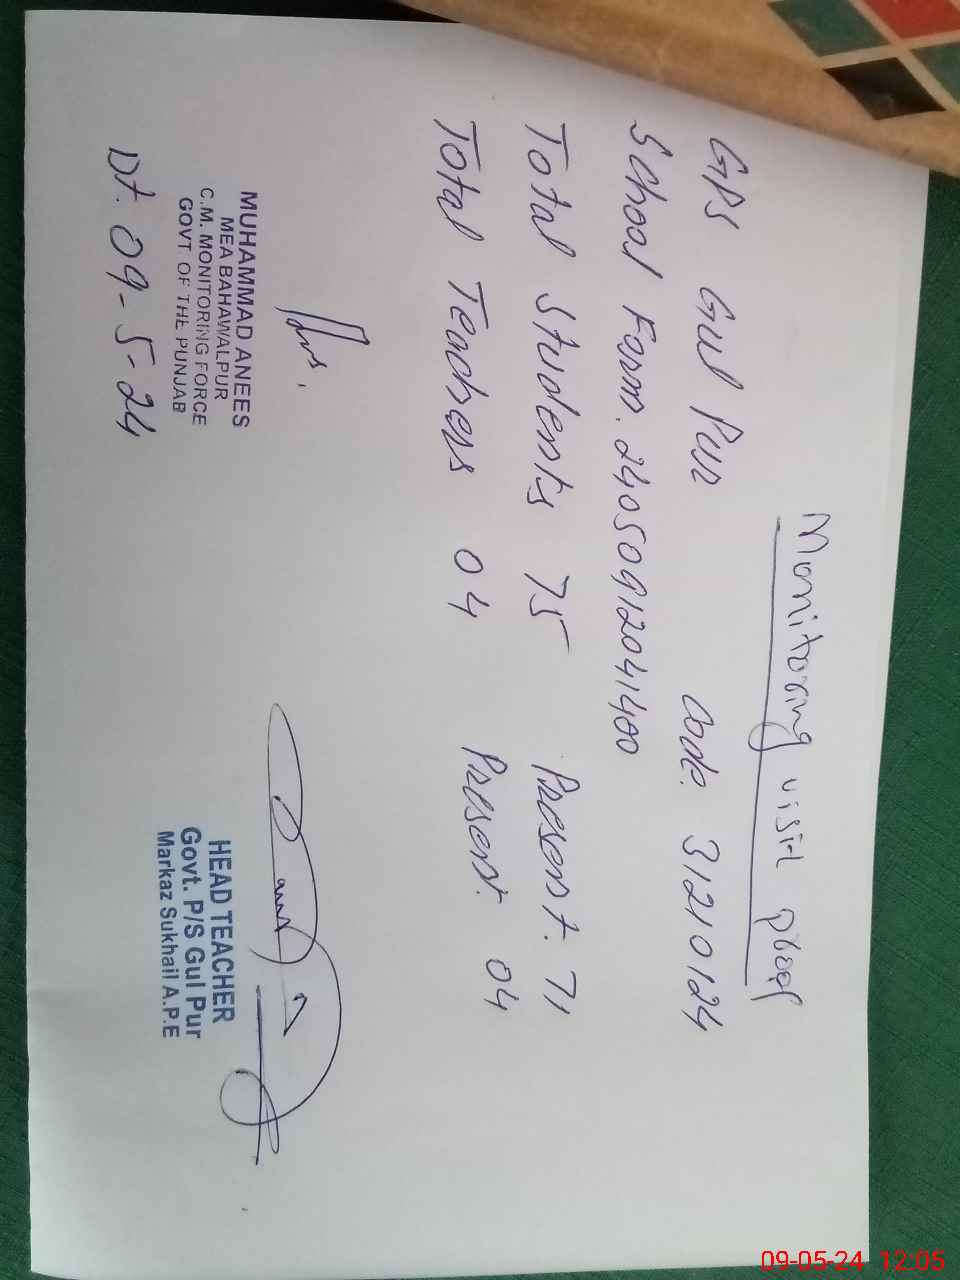 Monitoring visit proof
GPS Gul Pur code. 31210124
School Form. 24050912041400
Total Students 75 Present. 71
Total Teachers 04 Present. 04
MUHAMMAD ANEES
MEA BAHAWALPUR
C.M. MONITORING FORCE
GOVT. OF THE PUNJAB
Dt. 09-5-24
HEAD TEACHER
Govt. P/S Gul Pur
Markaz Sukhail A.P.E
09-05-24 12:05